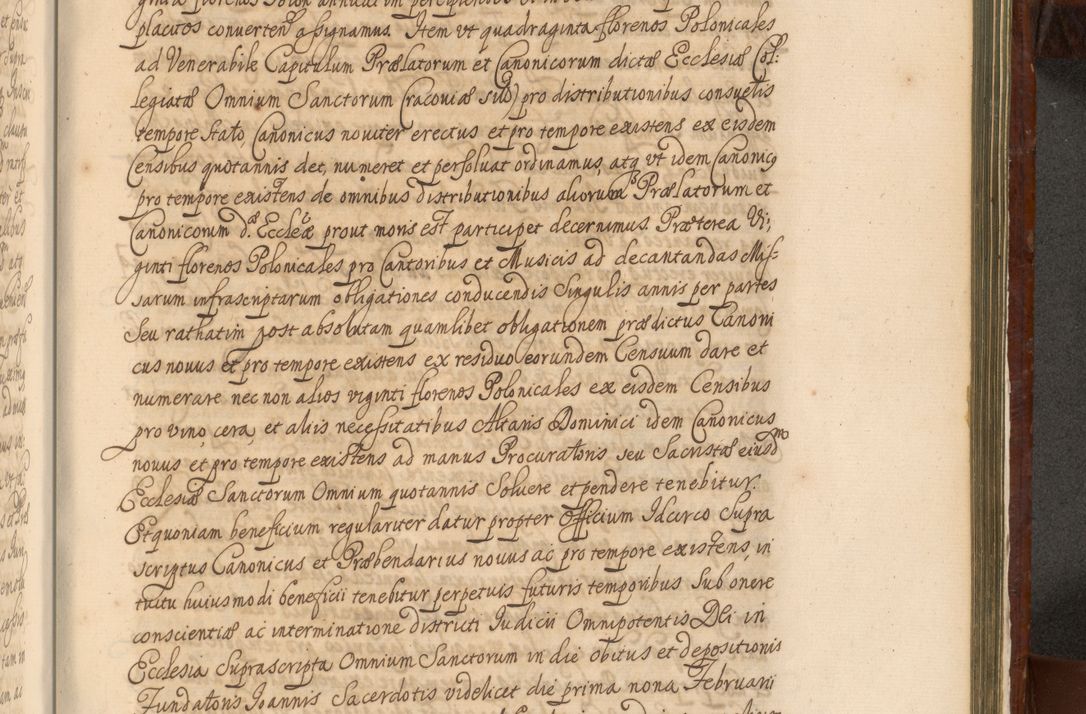 placitos converten assignamus. Item vt quadraginta florenos Polonicales
ad Venerabile Capitulum Prælatorum et Canonicorum dictæ Ecclesiæ Col:
legiatæ Omnium Sanctorum Cracoviæ pro distributionibus consuetis
tempore stato, Canonicus noviter erectus et pro tempore existens ex eisdem
Censibus quotannis det, numeret et persoluat ordinamus, atq vt idem Canonicg
pro tempore existens de omnibus distributionibus aliorum Prælatorum et
Canonicorum d. Eccleæ prout moris est participet decernimus. Præterea Vi:
ginti florenos Polonicales pro Cantoribus et Musicis ad decantandas Mis-
sarum infrascriptarum obligationes conducendis Singulis annis per partes
Seu rathatim post absolutam quamlibet obligationem prædictus Canoni
cus novus et pro tempore existens ex residuo eorundem Censuum dare et
numerare nec non alios viginti florenos Polonicales ex eisdem Censibus
pro vino, cera, et aliis necessitatibus Altaris Dominici idem Canonicus
novus et pro tempore existens ad manus Procuratoris seu Sacristæ eiusd
Ecclesiæ Sanctorum Omnium quotannis Soluere et pendere tenebitur.
Et quoniam beneficium regulariter datur propter Officium Idcirco Supra
scriptus Canonicus et Præbendarius novus ac pro tempore existens, in
tuitu huiusmodi beneficii tenebitur perpetuis futuris temporibus Sub onere
conscientiæ ac interminatione districti Iudicii Omnipotentis Dei in
Ecclesia Suprascripta Omnium Sanctorum in die obitus et depositionis
Fundatoris Ioannis Sacerdotis videlicet die prima nona Februarii